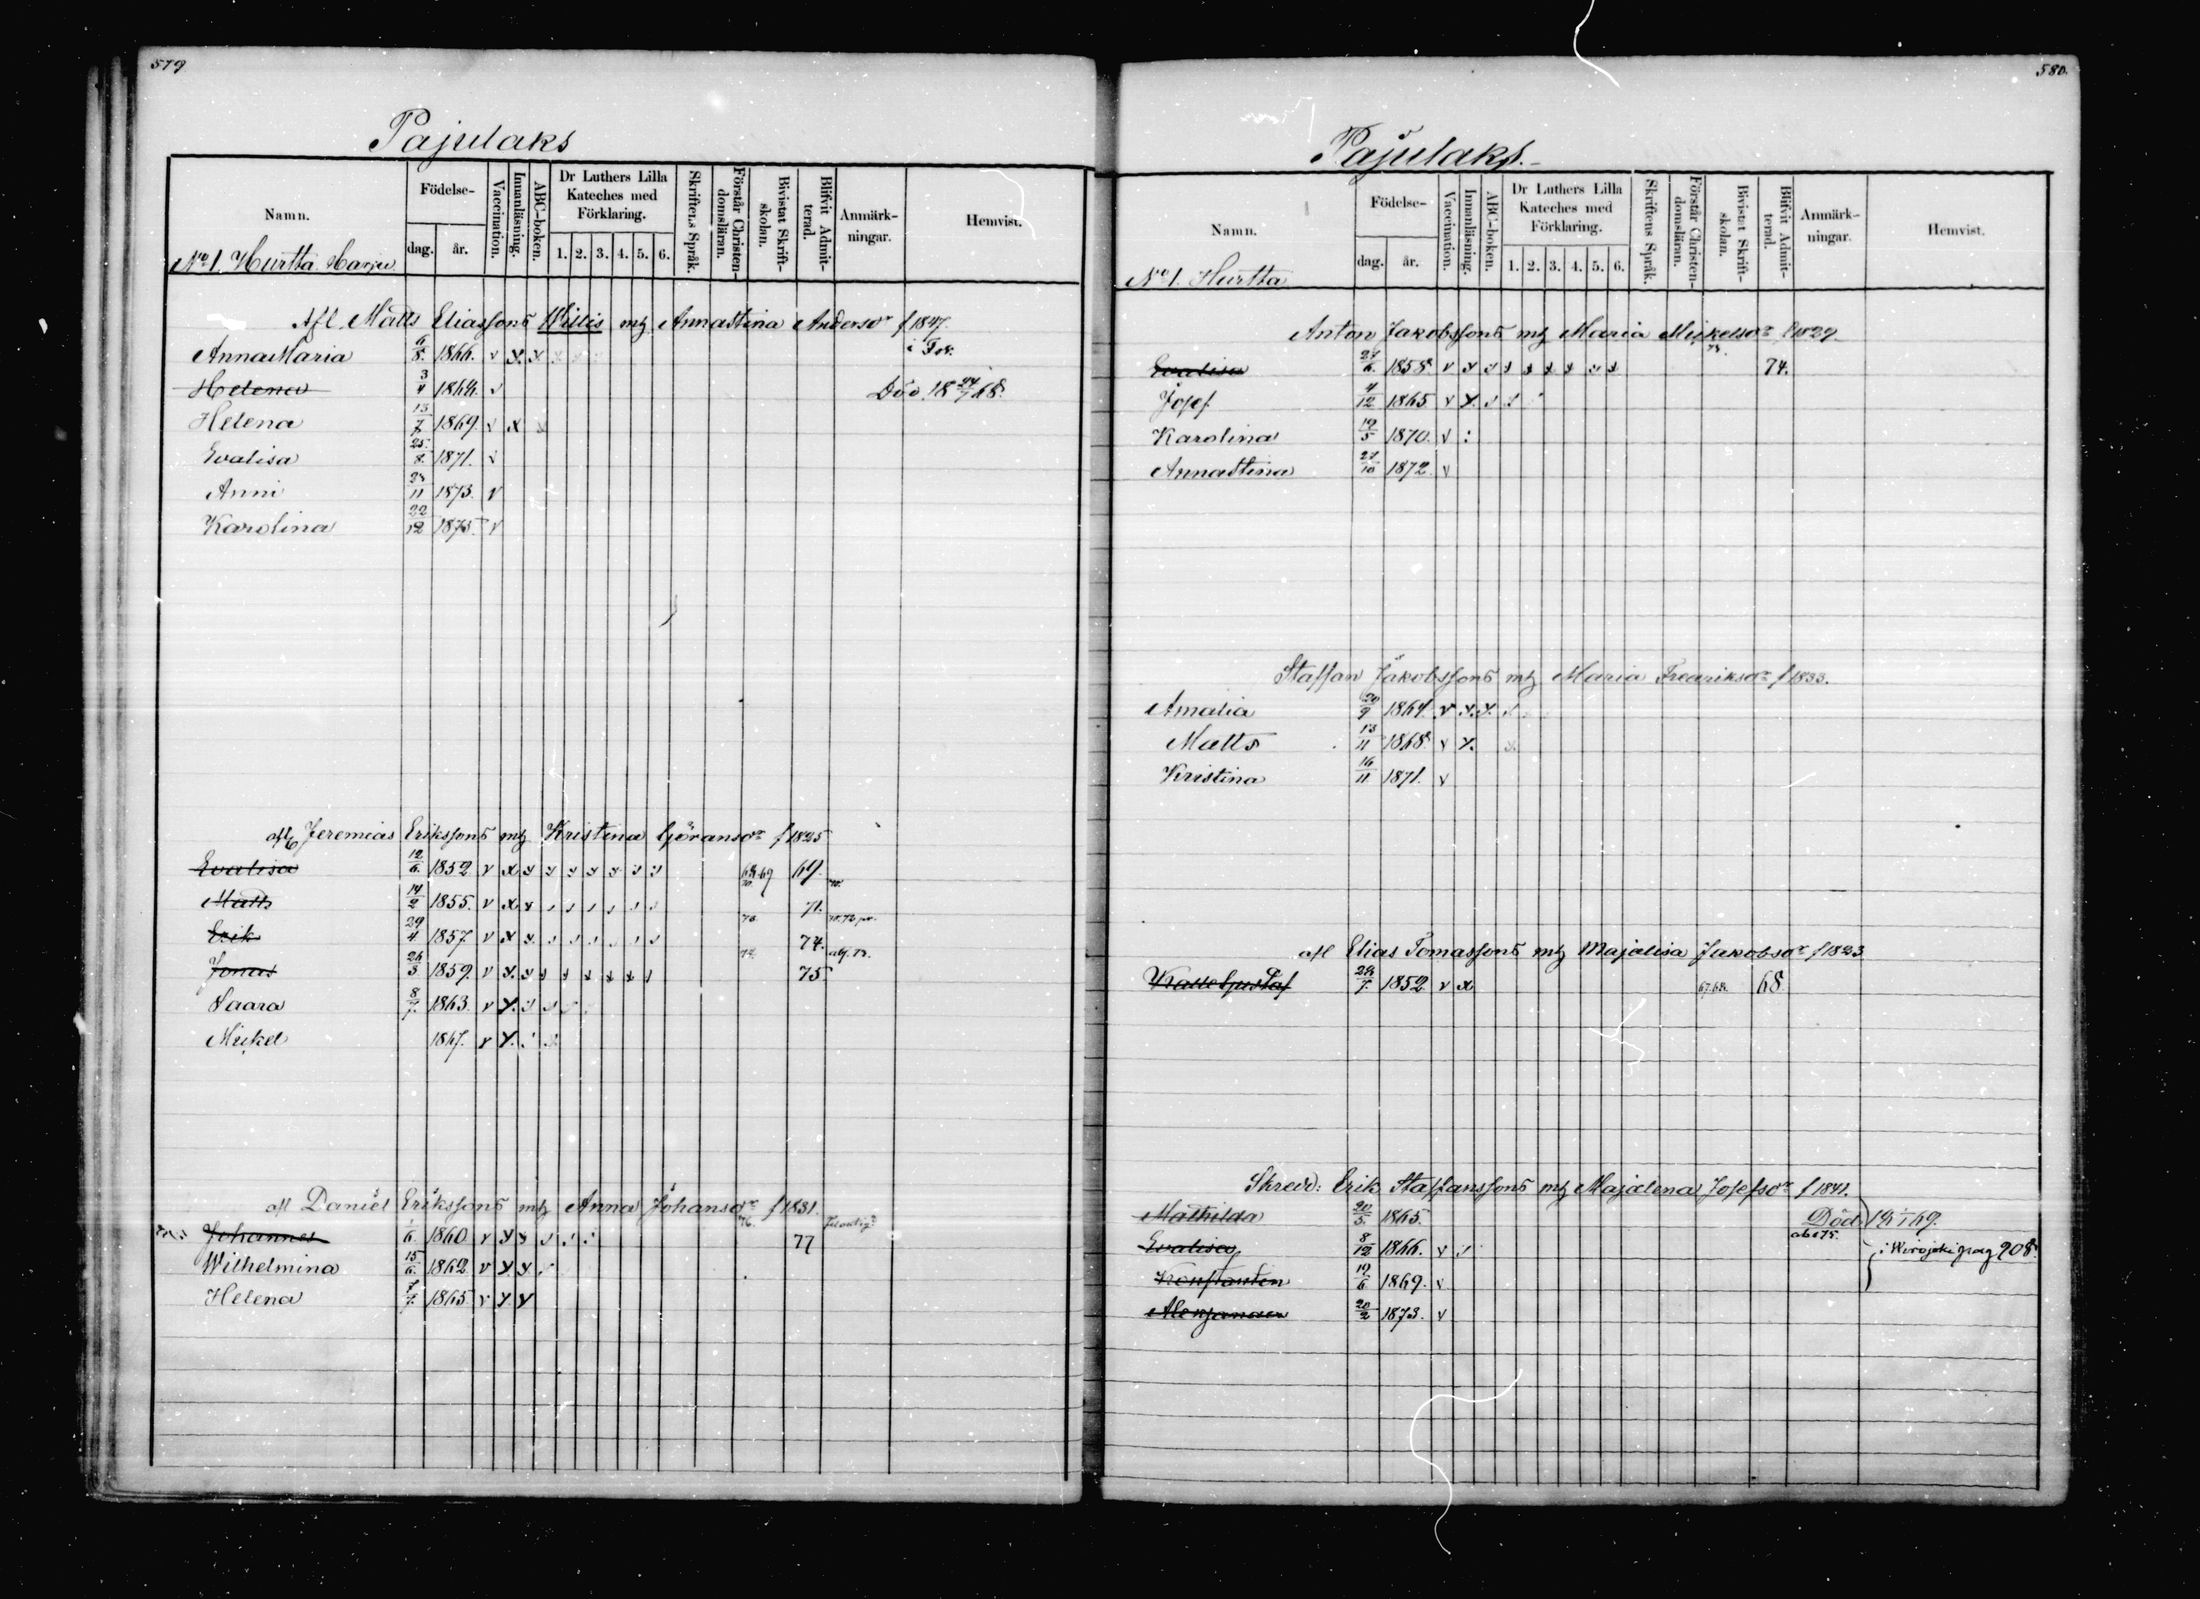 579
Pajulaks
Namn.
Födelse-
dag. år.
Vaccination.
Innanläsning.
ABC-boken.
Dr Luthers Lilla Kateches med Förklaring.
1. 2. 3. 4. 5. 6.
Skriftens Språk.
Förstår Christendomsläran.
Bivistat Skriftskolan.
Blifvit Admitterad.
Anmärkningar.
Hemvist.
No 1. Hurtta Harju
Afl. Matts Eliassons Willis mg Annastina Andersdr f 1847.
AnnaMaria 6/8. 1866. v x. x.
Helena 3/4 1864. v Död 18 24/7 68.
Helena 13/7 1869. v x
Evalisa 25/8. 1871. v
Anni 1873. v
Karolina 22/12 1875. v
afl Jeremias Erikssons mg Kristina Göransdr f 1825
Evalisa 12/6. 1852 v x 68.69 69.
Matts 14/2 1855. v x 71.
Erik 29/4 1857. v x 74.
Jonas 26/3 1859. v x. 75.
Saara 8/7. 1863. v x.
Mickel 1867. v x.
afl Daniel Erikssons mg Anna Johansdr f 1831.
Johannes 1/6. 1860. v x 77
Wilhelmina 15/6. 1862. v x x
Helena 7/7. 1865 v x x
580.
Pajulaks.
Namn.
Födelse-
dag. år.
Vaccination.
Innanläsning.
ABC-boken.
Dr Luthers Lilla Kateches med Förklaring.
1. 2. 3. 4. 5. 6.
Skriftens Språk.
Förstår Christendomsläran.
Bivistat Skriftskolan.
Blifvit Admitterad.
Anmärkningar.
Hemvist.
No 1. Hurtta
Anton Jakobssons mg Maria Mickelsdr f 1829.
Evalisa 27/6. 1858. v x 74.
Josef 4/12 1865 v x.
Karolina 19/5 1870. v
Annastina 27/10 1872. v
Staffan Jakobssons mg Maria Fredriksdr f 1833.
Amalia 20/9 1864. v x. x.
Matts 13/11 1868. v x.
Kristina 16/11 1871. v
afl Elias Tomassons mg Majalisa Jakobsdr f 1823
Kalle Gustaf 28/7. 1852 v x 67.68. 68.
Skredd: Erik Staffanssons mg Majalena Josefsdr f 1841.
Mathilda 20/5. 1865. Död 18 1/1 69.
Evalisa 8/12 1866. v
Konstantin 19/6 1869. v
20/2 1873. v
pag 908.